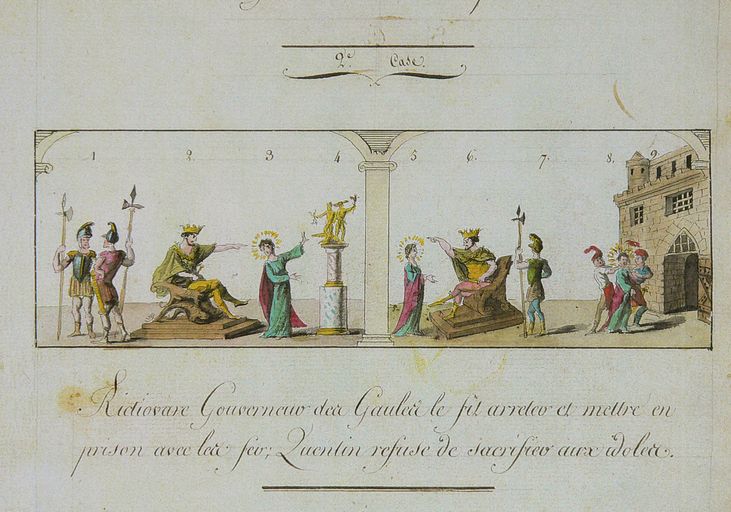 2.e Case.
1 2. 3 4 5 6. 7. 8. 9
Rictiovare Gouverneur des Gaules le fit arreter et mettre en
prison avec les fer; Quentin refuse de sacrifier aux idoles.